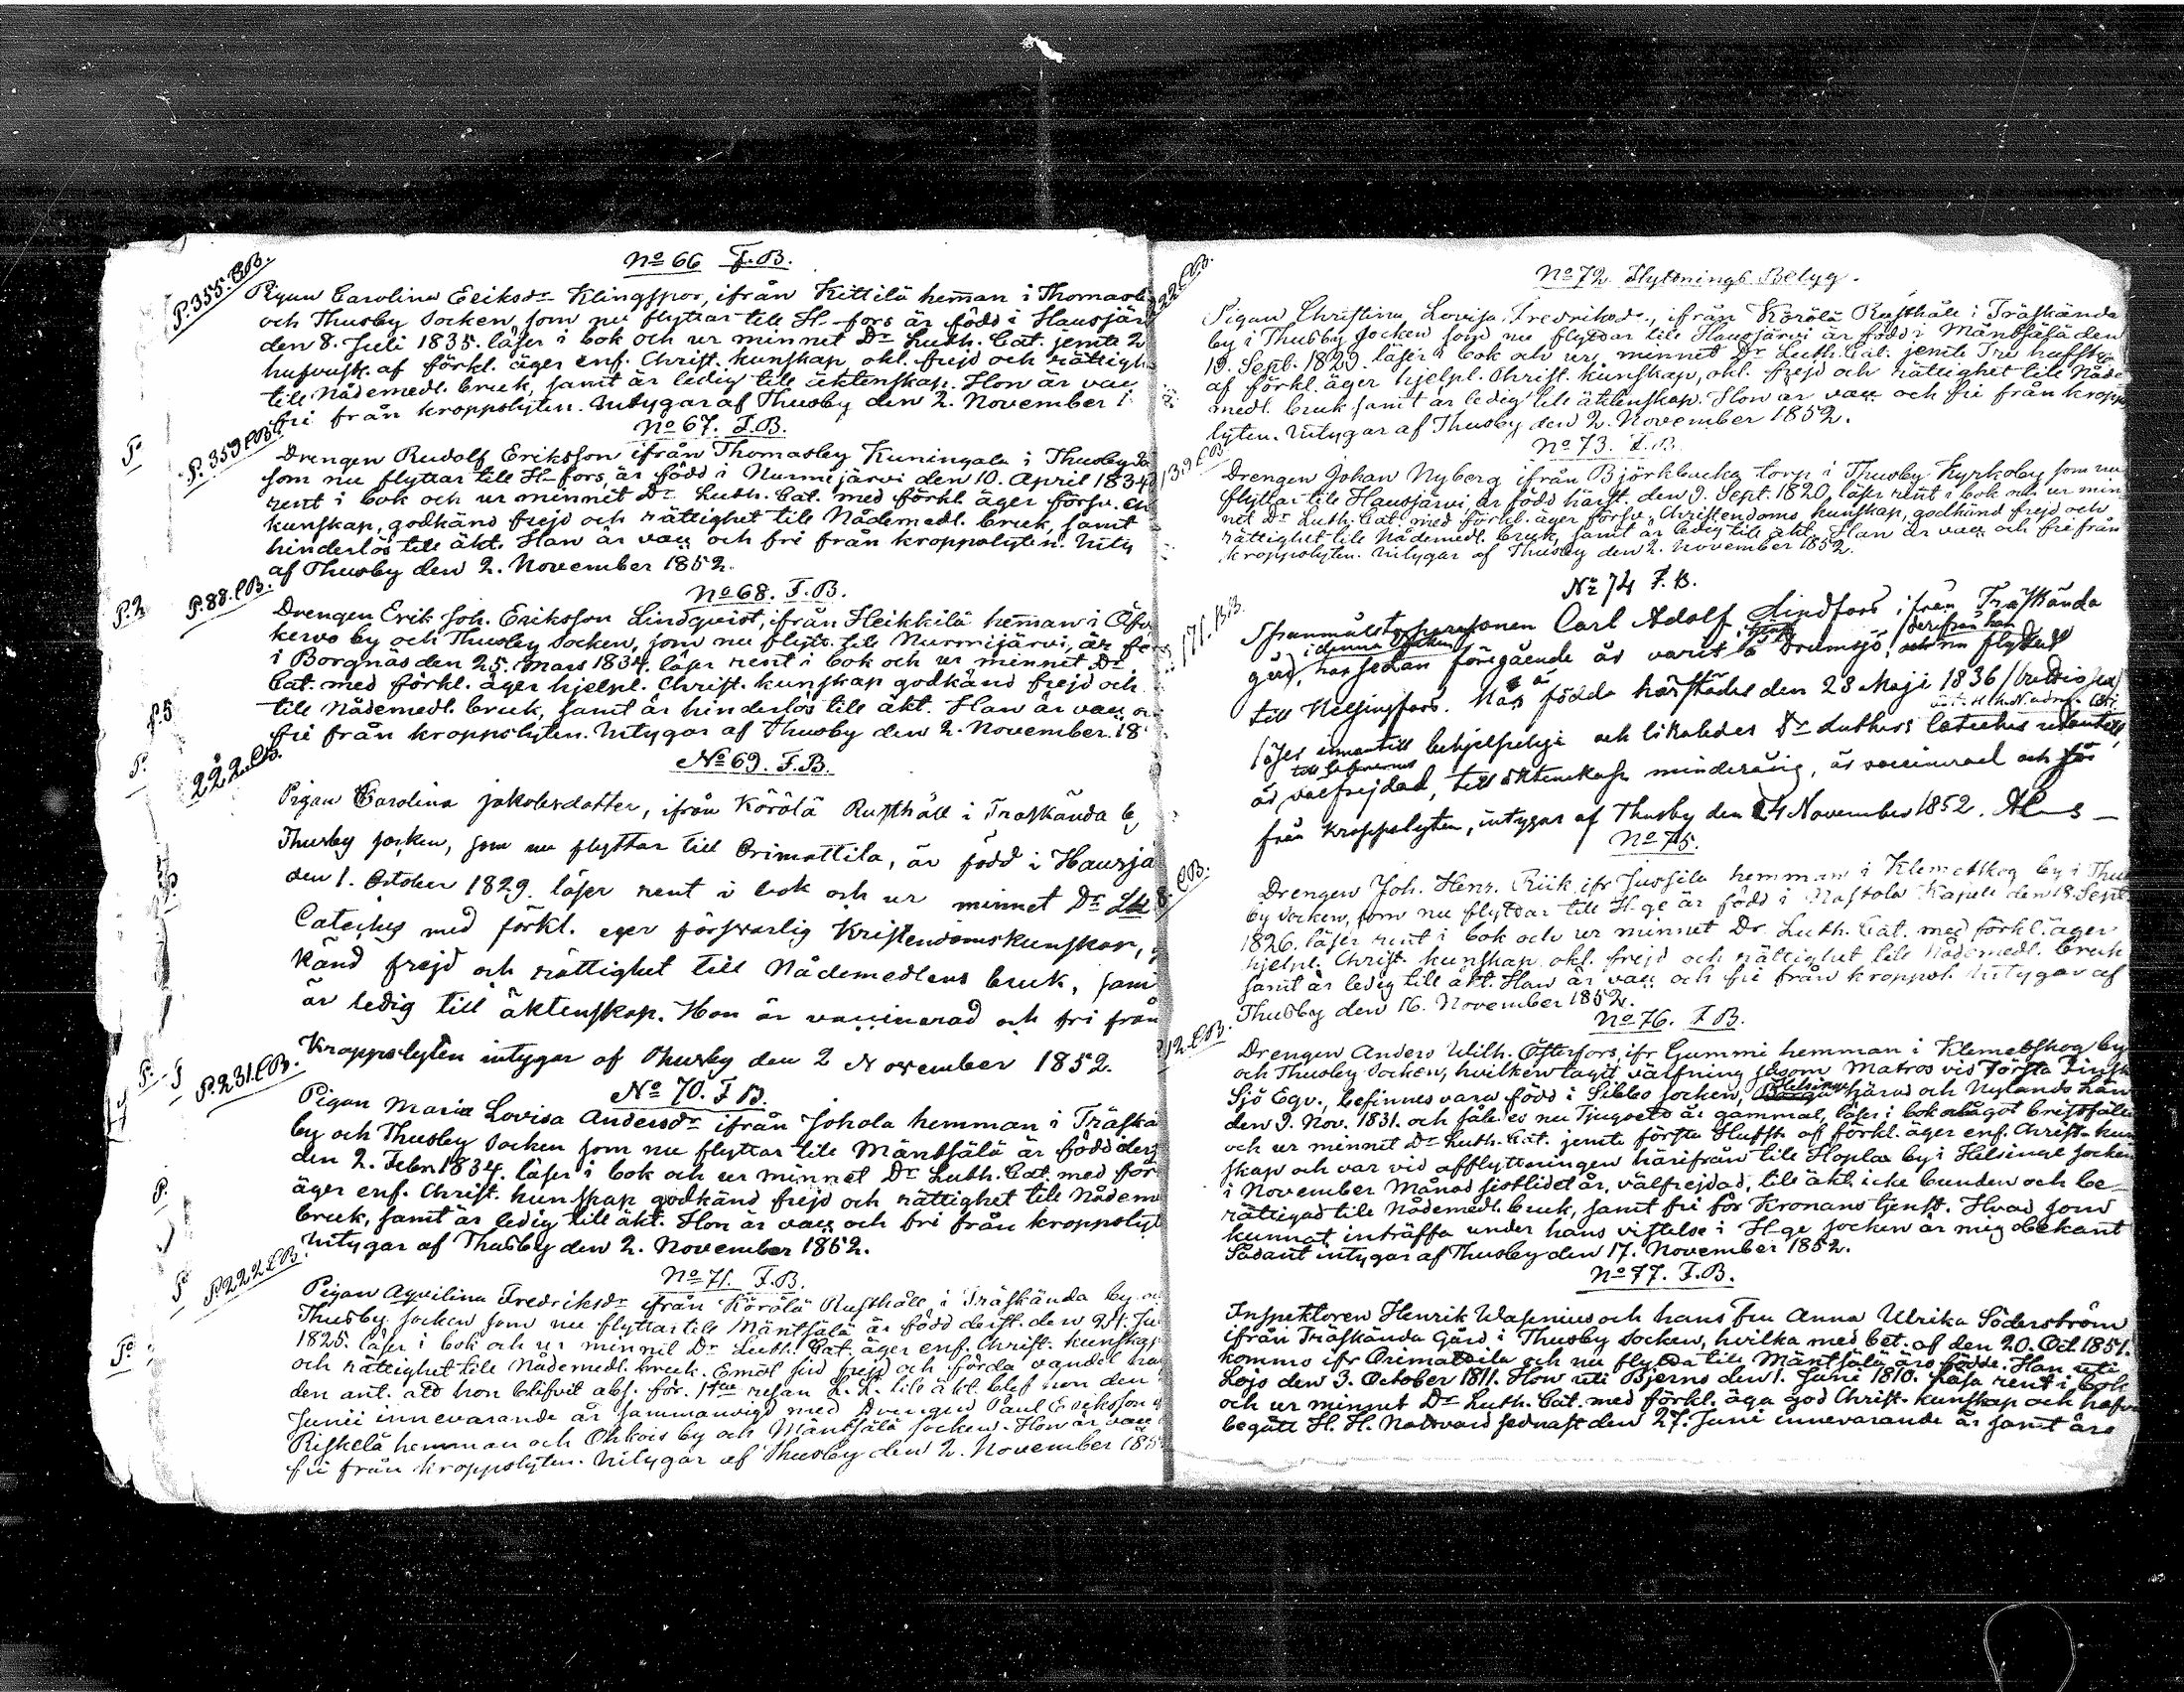 P. 355. CB.
No 66 F.B.
Pigan Carolina Eriksdr Klingspor, ifrån Kittilä hem̄an i Thomasby
och Thusby Socken som nu flyttar till H-fors är född i Hausjär
den 8. Juli 1835. läser i bok och ur minnet Dr Luth. Cat. jemte 2
hufvust. af förkl. äger enf. Christ. kunskap okl. frejd och rättigh
till Nådemedl. bruk, samt är ledig till äktenskap. Hon är vac
fri från kroppslyten. Intygar af Thusby den 2. November 1
P. 359 CB.
No 67. F.B.
Drengen Rudolf Eriksson ifrån Thomasby Kuningala i Thusby
som nu flyttar till H-fors, är född i Nurmijärvi den 10. April 1834
rent i bok och ur minnet Dr Luth. Cat. med förkl. äger försv.
kunskap, godkänd frejd och rättighet till Nådemedl. bruk, samt
hinderlös till äkt. Han är vacc och fri från kroppslyten. Inty
af Thusby den 2. November 1852.
P. 88. CB.
No 68. F.B.
Drengen Erik Joh. Eriksson Lindqvist, ifrån Heikkilä hem̄an i
kervo by och Thusby Socken, som nu flytt. till Nurmijärvi, är
i Borgnäs den 25. Mars 1834. läser rent i bok och ur minnet Dr
Cat. med förkl. äger hjelpl. Christ. kunskap godkänd frejd och
till Nådemedl. bruk, samt är hinderlös till äkt. Han är vacc
fri från kroppslyten. Intygar af Thusby den 2. November. 18
222 CB.
No 69. F.B.
Pigan Carolina Jakobsdotter, ifrån Körölä Rusthåll i Träskända b
Thusby socken, som nu flyttar till Orimattila, är född i Hausjä
den 1. October 1829. läser rent i bok och ur minnet Dr
Cateches med förkl. eger försvarlig Kristendomskunskap,
känd frejd och rättighet till Nådemedlens bruk, sam
är ledig till äktenskap. Hon är vaccinerad och fri från
Kroppslyten intygar af Thusby den 2 November 1852.
P. 231. CB.
No 70. F.B.
Pigan Maria Lovisa Andersdr ifrån Johola hemman i Träskä
by och Thusby Socken som nu flyttar till Mäntsälä är född ders
den 2. Febr. 1834. läser i bok och ur minnet Dr Luth. Cat. med för
äger enf. Christ. kunskap godkänd frejd och rättighet till Nådem
bruk, samt är ledig till äkt. Hon är vacc och fri från kroppslyt
Intygar af Thusby den 2. November 1852.
P. 222 CB.
No 71. F.B.
Pigan Aqvilina Fredriksdr ifrån Körölä Rusthåll i Träskända by
Thusby socken som nu flyttar till Mäntsälä är född derst. den 24. Ju
1825. läser i bok och ur minnet Dr Luth. Cat. äger enf. Christ. kunskap
och rättighet till Nådemedl. bruk. Emot sin frejd och förda vandel
den ant. att hon blifvit abs. för 1sta resan L.S. till äkt. blef hon den
Junii innevarande år sammanvigd med Drengen Paul Eriksson
Riskelä hemman och Ohkois by och Mäntsälä socken. Hon är vacc
fri från kroppslyten. Intygar af Thusby den 2. November 185
No 72. Flyttnings Belyg.
Pigan Christina Lovisa Fredriksdr., ifrån Körölä Rusthåll i Träskända
by i Thusby Socken som nu flyttar till Hausjärvi är född i Mäntsälä den
19. Sept. 1829. läser i bok och ur minnet Dr Luth. Cat. jemte Tre hufst
af förkl. äger hjelpl. Christ. kunskap, okl. frejd och rättighet till Nåde
medl. bruk samt är ledig till äktenskap. Hon är vacc och fri från kropps
lyten. Intygar af Thusby den 2. November 1852.
139 CB.
No 73. F.B.
Drengen Johan Nyberg ifrån Björkbacka torp i Thusby Kyrkoby som nu
flyttar till Hausjärvi, är född härst. den 9. Sept. 1820, läser rent i bok och ur min
net Dr Luth. Cat. med förkl. äger försv. Christendoms kunskap, godkänd frejd och
rättighet till Nådemedl. bruk, samt är ledig till äkt. Han är vacc och fri från
kroppslyten. Intygar af Thusby den 2. November 1852.
171. BB.
No 74 F.B.
Spanmålstaxpersonen Carl Adolf Lindfors ifrån Träskända
i denna socken
derifrån han
gård, har sedan föregående år varit å Drumsjö, nu flyttat
till Helsingfors. Han är födde härstädes den 28 Maji 1836
läser innantill behjelpeligt och likaledes Dr Luthers Cateches utantill,
är välfrejdad, till äktenskap minderårig, är vaccinerad och fri
från kroppslyten, intygar af Thusby den 4 November 1852.
No 75.
Drengen Joh. Henr. Riik ifr Jussila hemman i Klemetskog by i Thu
by Socken, som nu flyttar till H-ge är född i Nastola Kapell den 18. Sept.
1826. läser rent i bok och ur minnet Dr. Luth. Cat. med förkl. äger
hjelpl. Christ. kunskap okl. frejd och rättighet till Nådemedl. bruk
samt är ledig till äkt. Han är vacc och fri från kroppsl. Intygar af
Thusby den 16. November 1852.
212 CB.
No 76. F.B.
Drengen Anders Wilh. Österfors, ifr Gummi hemman i Klemetskog by
och Thusby Socken, hvilken tagit värfning såsom Matros vid Första Finsk
Sjö Eqv., befinnes vara född i Sibbo socken, Helsinge härad och Nylands Län
den 9. Nov. 1831. och således nu Tjuguett år gammal, läser i bok något bristfälli
och ur minnet Dr Luth. Cat. jemte första Hufst. af förkl. äger enf. Christ. kun
skap och var vid afflyttningen härifrån till Hoplax by i Helsinge Socken
i November Månad sistlidet år, välfrejdad, till äkt. icke bunden och be-
rättigad till Nådemedl. bruk, samt fri för Kronans tjenst. Hvad som
kunnat inträffa under hans vistelse i H-ge socken är mig obekant
Sådant intygar af Thusby den 17. November 1852.
No 77. F.B.
Inspektoren Henrik Wasenius och hans fru Anna Ulrika Söderström
ifrån Träskända Gård i Thusby Socken, hvilka med bet. af den 20. Oct 1851.
kommo ifr Orimattila och nu flytta till Mäntsälä äro födde. Han uti
Lojo den 3. October 1811. Hon uti Bjerno den 1. Juni 1810. läsa rent i bok
och ur minnet Dr Luth. Cat. med förkl. äga god Christ. kunskap och hafva
begått H. H. Nattvard sednast den 27. Juni innevarande år samt äro